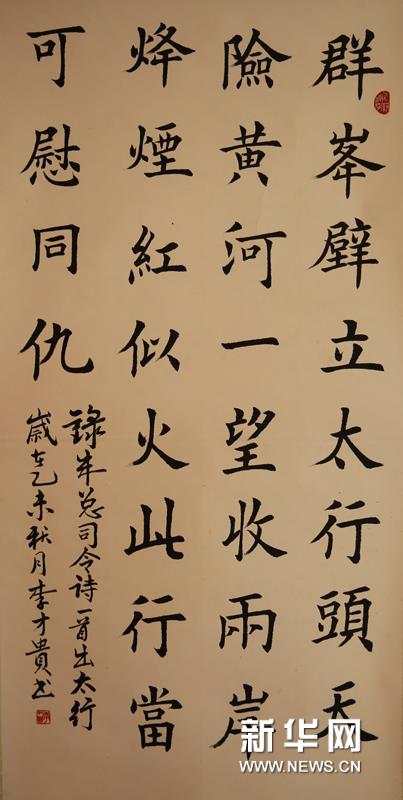 群峯壁立太行頭天
險黄河一望收兩岸
烽煙紅似火此行當
可慰同仇
錄朱总司令诗一首出太行
歲在乙未秋月李才貴书
新华网
WWW.NEWS.CN